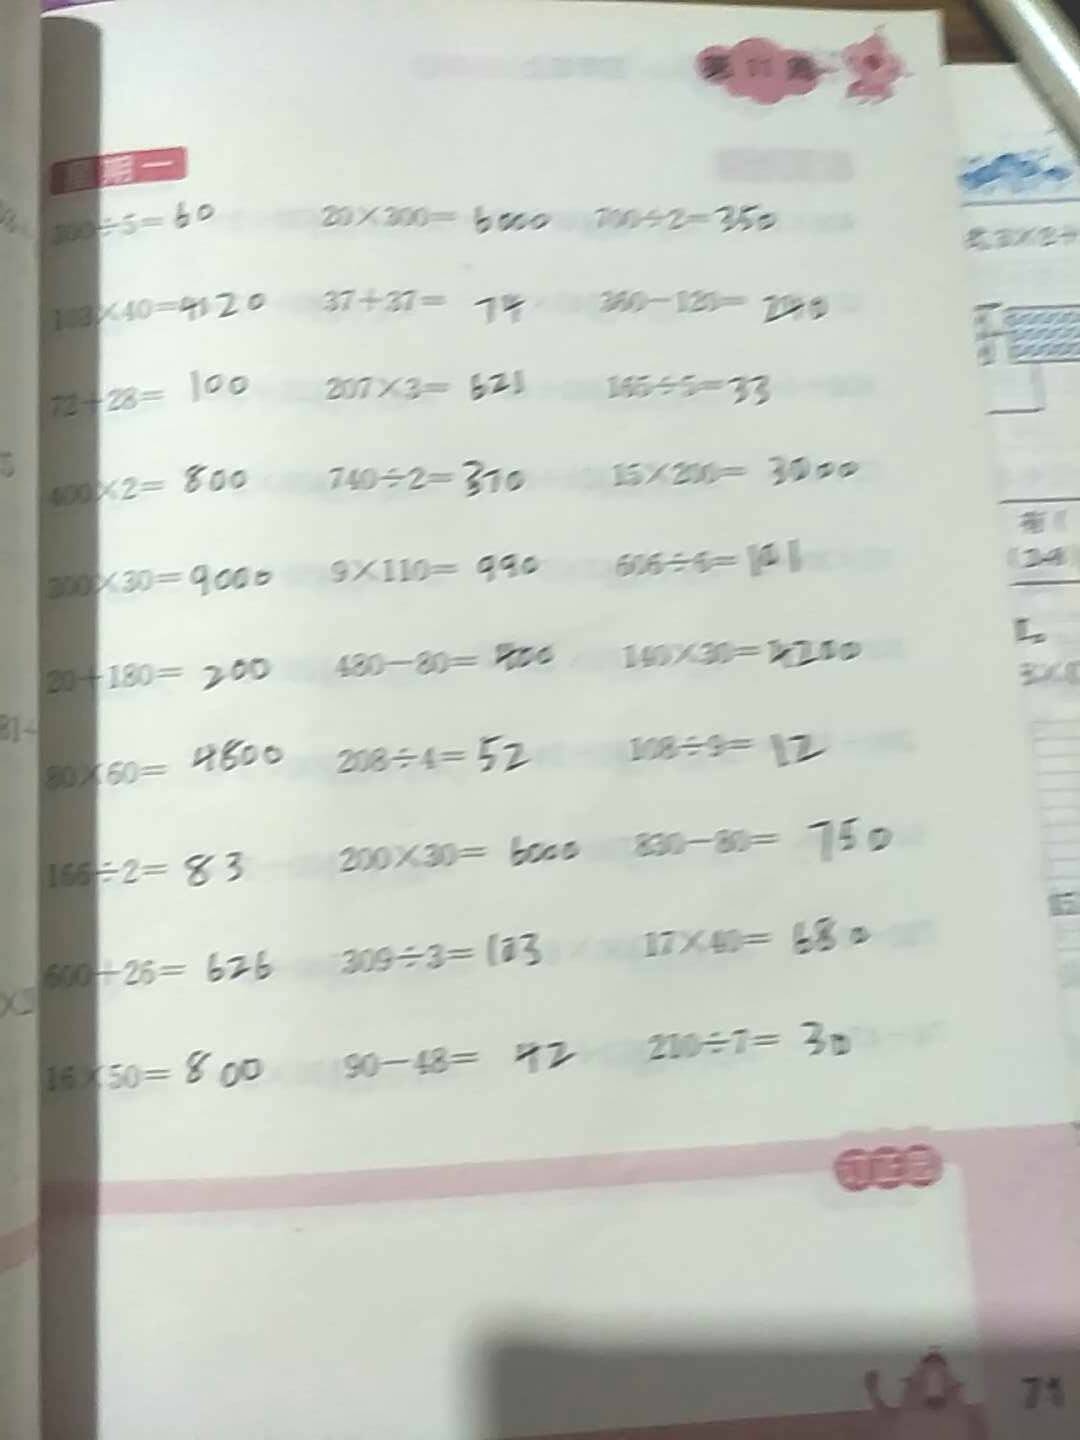 第11周
星期一
300÷5=60 20×300=6000 700÷2=350
103×40=4120 37+37=74 360-120=240
72+28=100 207×3=621 165÷5=33
400×2=800 740÷2=370 15×200=3000
300×30=9000 9×110=990 606÷6=101
20+180=200 480-80=400 140×30=4200
80×60=4800 208÷4=52 108÷9=12
166÷2=83 200×30=6000 830-80=750
600+26=626 309÷3=103 17×40=680
16×50=800 90-48=42 210÷7=30
71